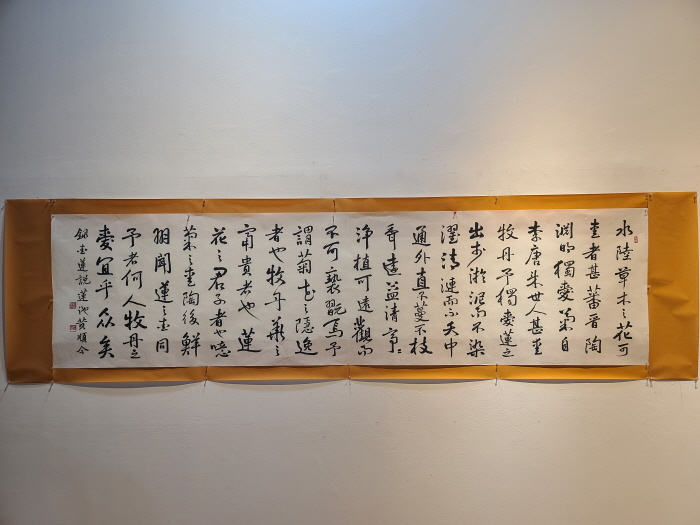 水陸草木之花可
愛者甚蕃晉陶
淵明獨愛菊自
李唐來世人甚愛
牡丹予獨愛蓮之
出於淤泥而不染
濯清漣而不夭中
通外直不蔓不枝
香遠益清亭亭
淨植可遠觀而
不可褻翫焉予
謂菊花之隱逸
者也牡丹花之
富貴者也蓮
花之君子者也噫
菊之愛陶後鮮
有聞蓮之愛同
予者何人牡丹之
愛宜乎眾矣
錄愛蓮說蓮池黃順今